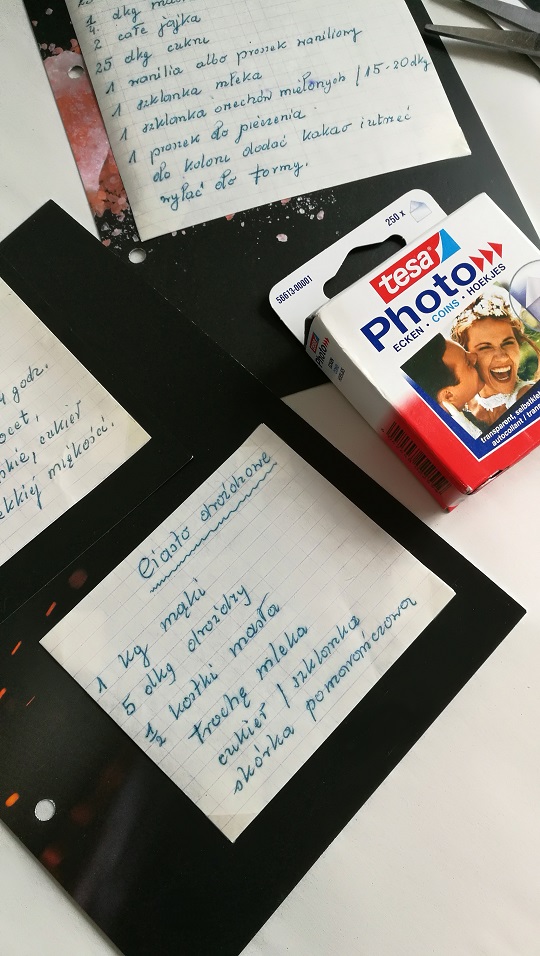 4. dkg
2 całe jajka
25 dkg cukru
1 wanilia albo proszek waniliowy
1 szklanka mleka
1 szklanka orzechów mielonych / 15-20 dkg
1 proszek do pieczenia.
do koloru dodać kakao i utrzeć
wylać do formy.
250 x
56613-00001
tesa
Photo
ECKEN · COINS · HOEKJES
tesa
Photo
transparent, selbstkle
autocollant / trans
godz.
cukier
miękkości.
Ciasto drożdżowe
1 kg mąki
5 dkg drożdży
1/2 kostki masła
trochę mleka
cukier / szklanka
skórka pomarańczowa